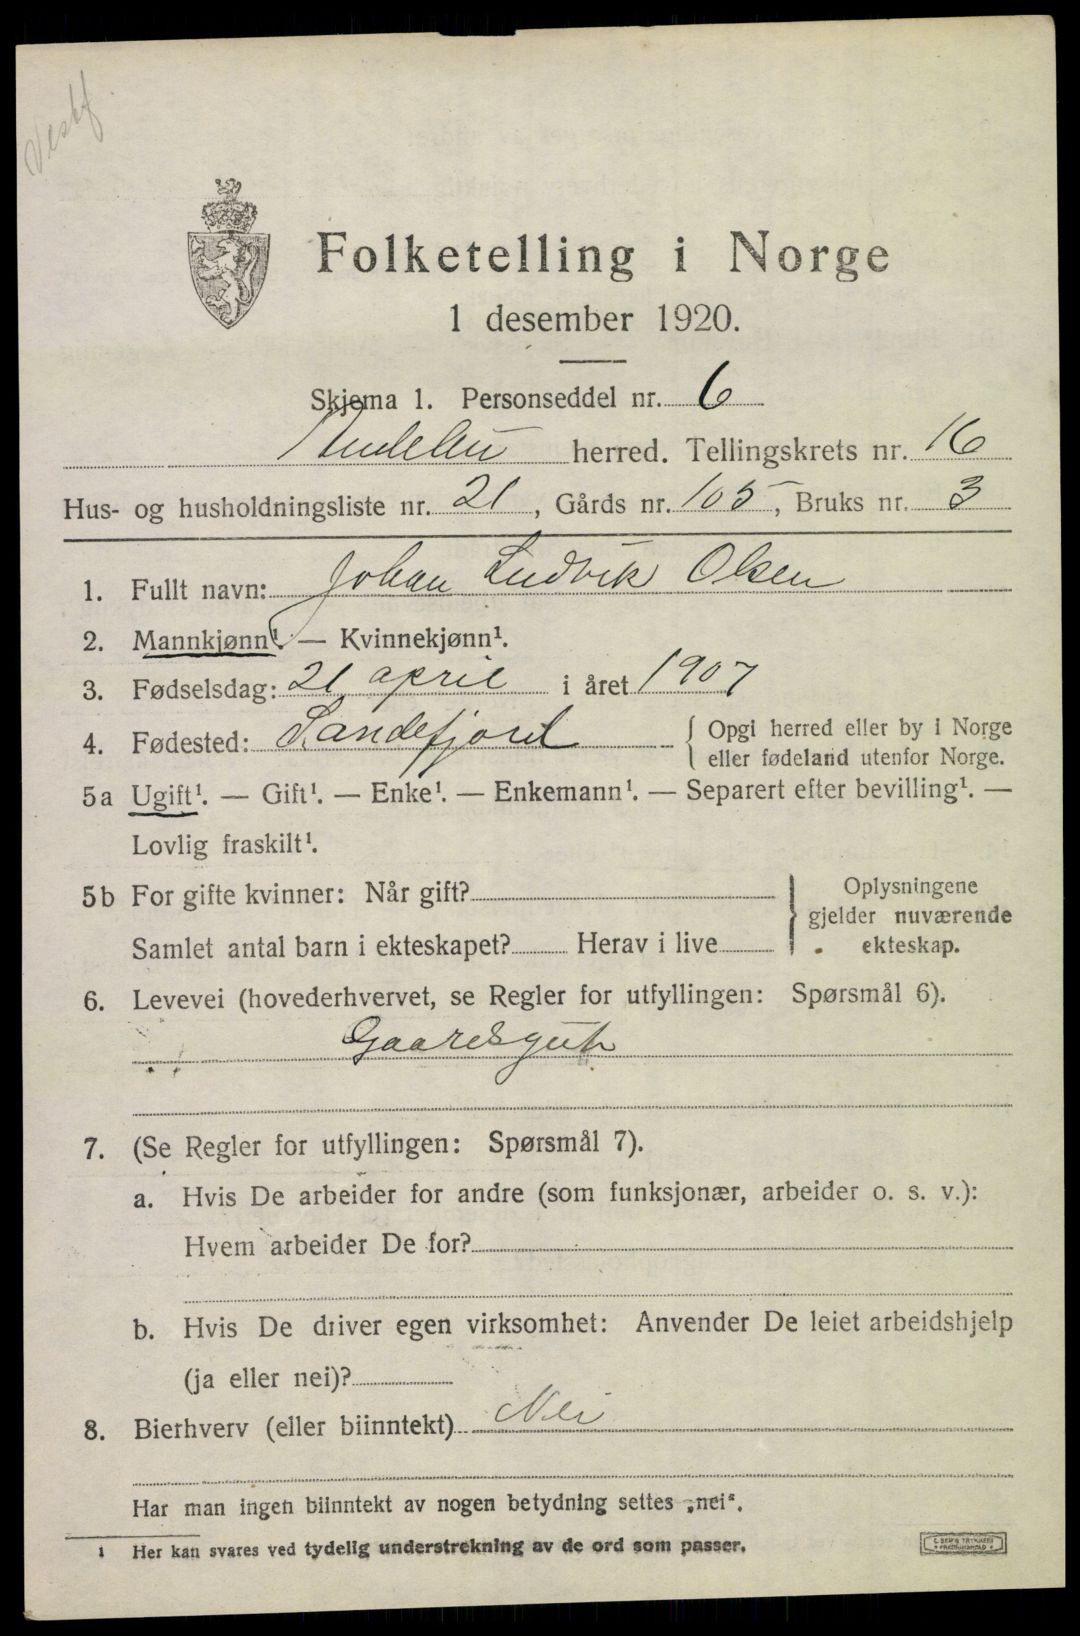 Vestf
Folketelling i Norge
1 desember 1920.
Skjema 1. Personseddel nr. 6
Andebu herred. Tellingskrets nr. 16
Hus- og husholdningsliste nr. 21, Gårds nr. 105, Bruks nr. 3
1. Fullt navn: Johan Ludvik Olsen
2. Mannkjønn¹. — Kvinnekjønn¹.
3. Fødselsdag: 21 april i året 1907
4. Fødested: Sandefjord { Opgi herred eller by i Norge
eller fødeland utenfor Norge.
5a Ugift¹. — Gift¹. — Enke¹. — Enkemann¹. — Separert efter bevilling¹. —
Lovlig fraskilt¹.
5b For gifte kvinner: Når gift?
Samlet antal barn i ekteskapet? Herav i live
} Oplysningene
gjelder nuværende
ekteskap.
6. Levevei (hovederhvervet, se Regler for utfyllingen: Spørsmål 6).
Gaardsgut
7. (Se Regler for utfyllingen: Spørsmål 7).
a. Hvis De arbeider for andre (som funksjonær, arbeider o. s. v.):
Hvem arbeider De for?
b. Hvis De driver egen virksomhet: Anvender De leiet arbeidshjelp
(ja eller nei)?
8. Bierhverv (eller biinntekt) Nei
Har man ingen biinntekt av nogen betydning settes „nei“.
¹ Her kan svares ved tydelig understrekning av de ord som passer.